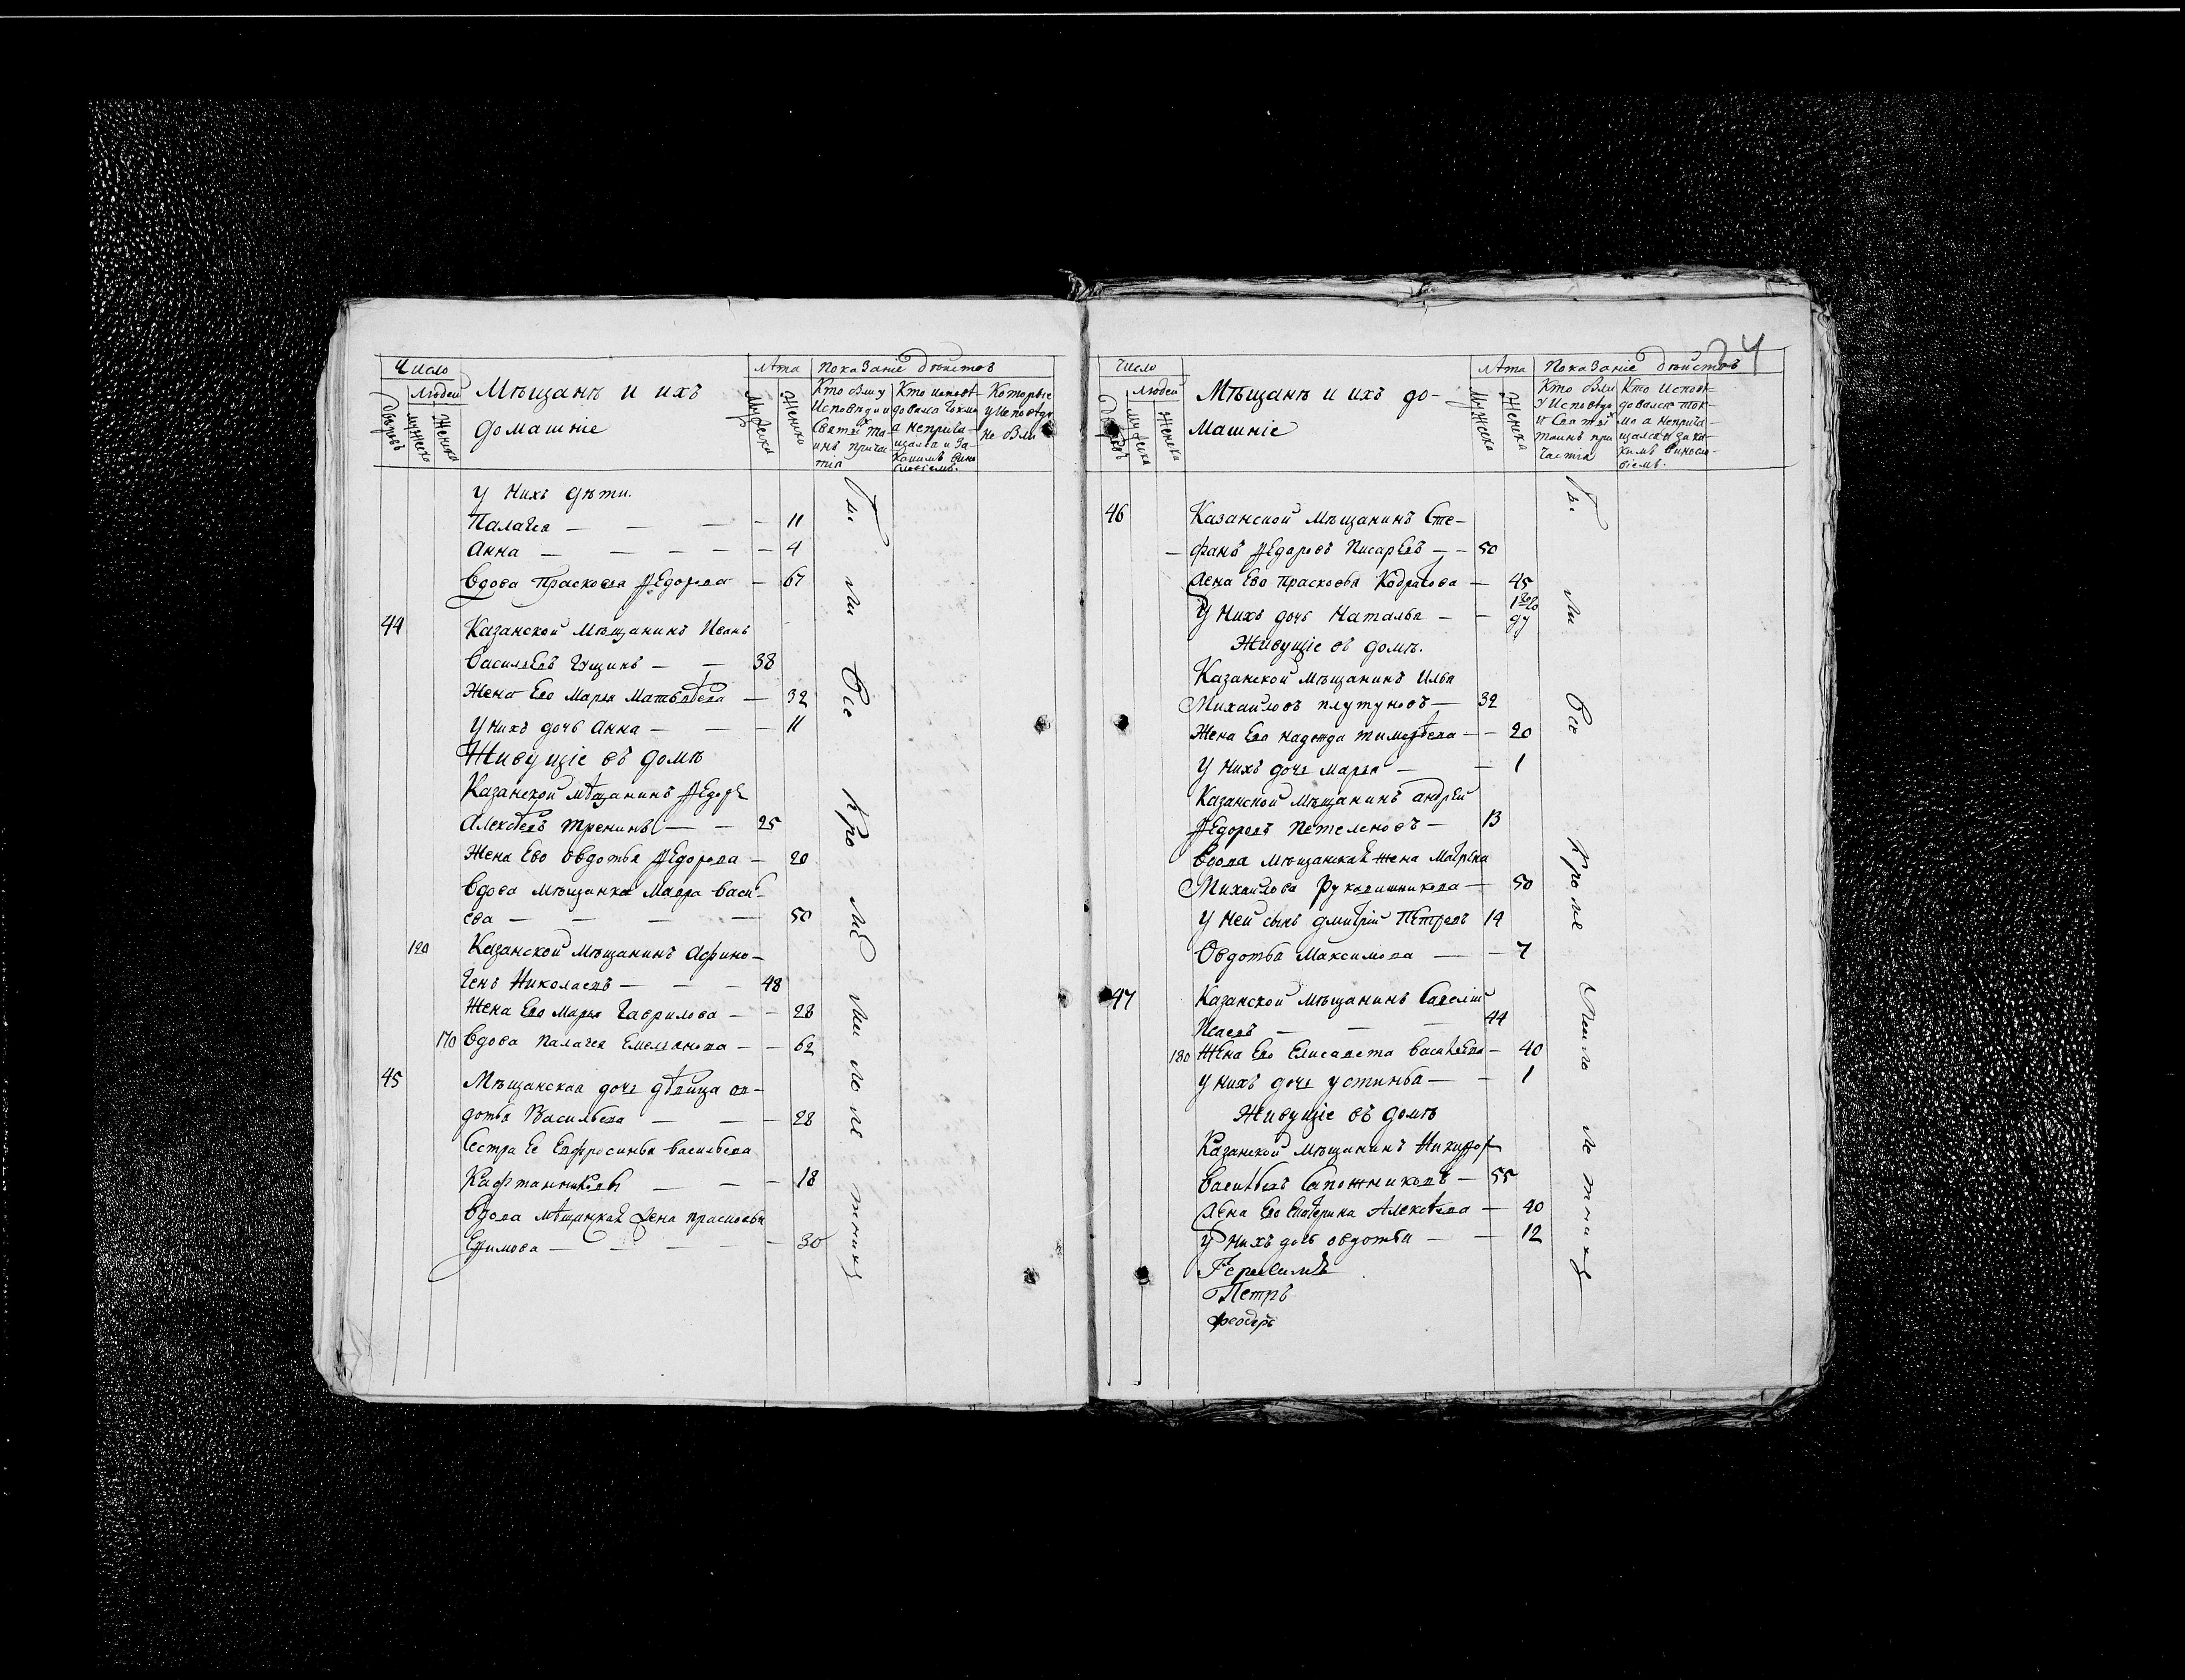 Число
Людей
Дворовъ
Мужеска
Женска
Мѣщанъ и ихъ
домашніе
лѣта
Мужска
Женска
Показаніе дѣйствъ
Кто были у
Исповѣди и
Святыхъ та-
инъ прича-
стія
Кто исповѣ-
довался токмо
а неприча-
щался и за
какимъ вино-
словіемъ.
Которые
у исповѣди
не были
У нихъ дѣти.
Палагея — — — — 11
Анна — — — — — 4
Вдова Прасковья Ѳедорова — 67
44 Казанской Мѣщанинъ Иванъ
Васильевъ Гущинъ — — 38
Жена Ево Марья Матвѣева — 32
У нихъ дочь Анна — — — 11
Живущіе въ домѣ
Казанской мѣщанинъ Ѳедоръ
Алексѣевъ Тренинъ — — 25
Жена Ево Овдотья Ѳедорова — 20
Вдова мѣщанка Мавра Василь-
ева — — — — 50
120 Казанской Мѣщанинъ Афино-
генъ Николаевъ — — — 48
Жена Ево Марья Гаврилова — — 28
170 Вдова Палагея Емельянова — — 62
45 Мѣщанская дочь дѣвица ов-
дотья Васильева — — — 28
Сестра Ее Евфросинья Васильева
Кафтанниковы — — — 18
Вдова мѣщанская Жена прасковья
Ефимова — — — — — 30
бы ли всѣ кро мѣ ма ло лѣ тныхъ
24
Число
Людей
Дворовъ
Мужеска
Женска
Мѣщанъ и ихъ до-
машніе
лѣта
Мужеска
Женска
Показаніе дѣйствъ
Кто были
У Исповѣди
и Святыхъ
таинъ при
частія
Кто Исповѣ-
довался ток-
мо а неприча-
щался и за ка-
кимъ винносло-
віемъ.
46 Казанской Мѣщанинъ Сте-
— фанъ Ѳедоровъ Писаревъ — — 50
Жена Ево Прасковья Кодратова — 45
У нихъ дочь Наталья — — 1го го
ду
Живущіе въ домѣ.
Казанской Мѣщанинъ Илья
Михаиловъ плутуновъ — 32
Жена Ево Надежда тимофѣева — — 20
У нихъ дочь марья — — 1
Казанской Мѣщанинъ андрей
Ѳедоровъ Петеленовъ — 13
Вдова Мѣщанская жена Матрена
Михаилова Рукавишникова — 50
У ней сынъ дмитрій Петровъ 14
Овдотья Максимова — — 7
47 Казанской Мѣщанинъ Савелій
Исаевъ — — — 44
180 Жена Ево Елисавета Васильева — 40
У нихъ дочь устинья — — 1
Живущіе въ домѣ
Казанской Мѣщанинъ Никифоръ
Васильевъ Сапожниковъ — 55
Жена Ево Екатерина Алексѣева — 40
У нихъ дочь овдотья — — 12
Герасимъ
Петръ
Феодоръ
бы ли всѣ кромѣ мало лѣ тныхъ